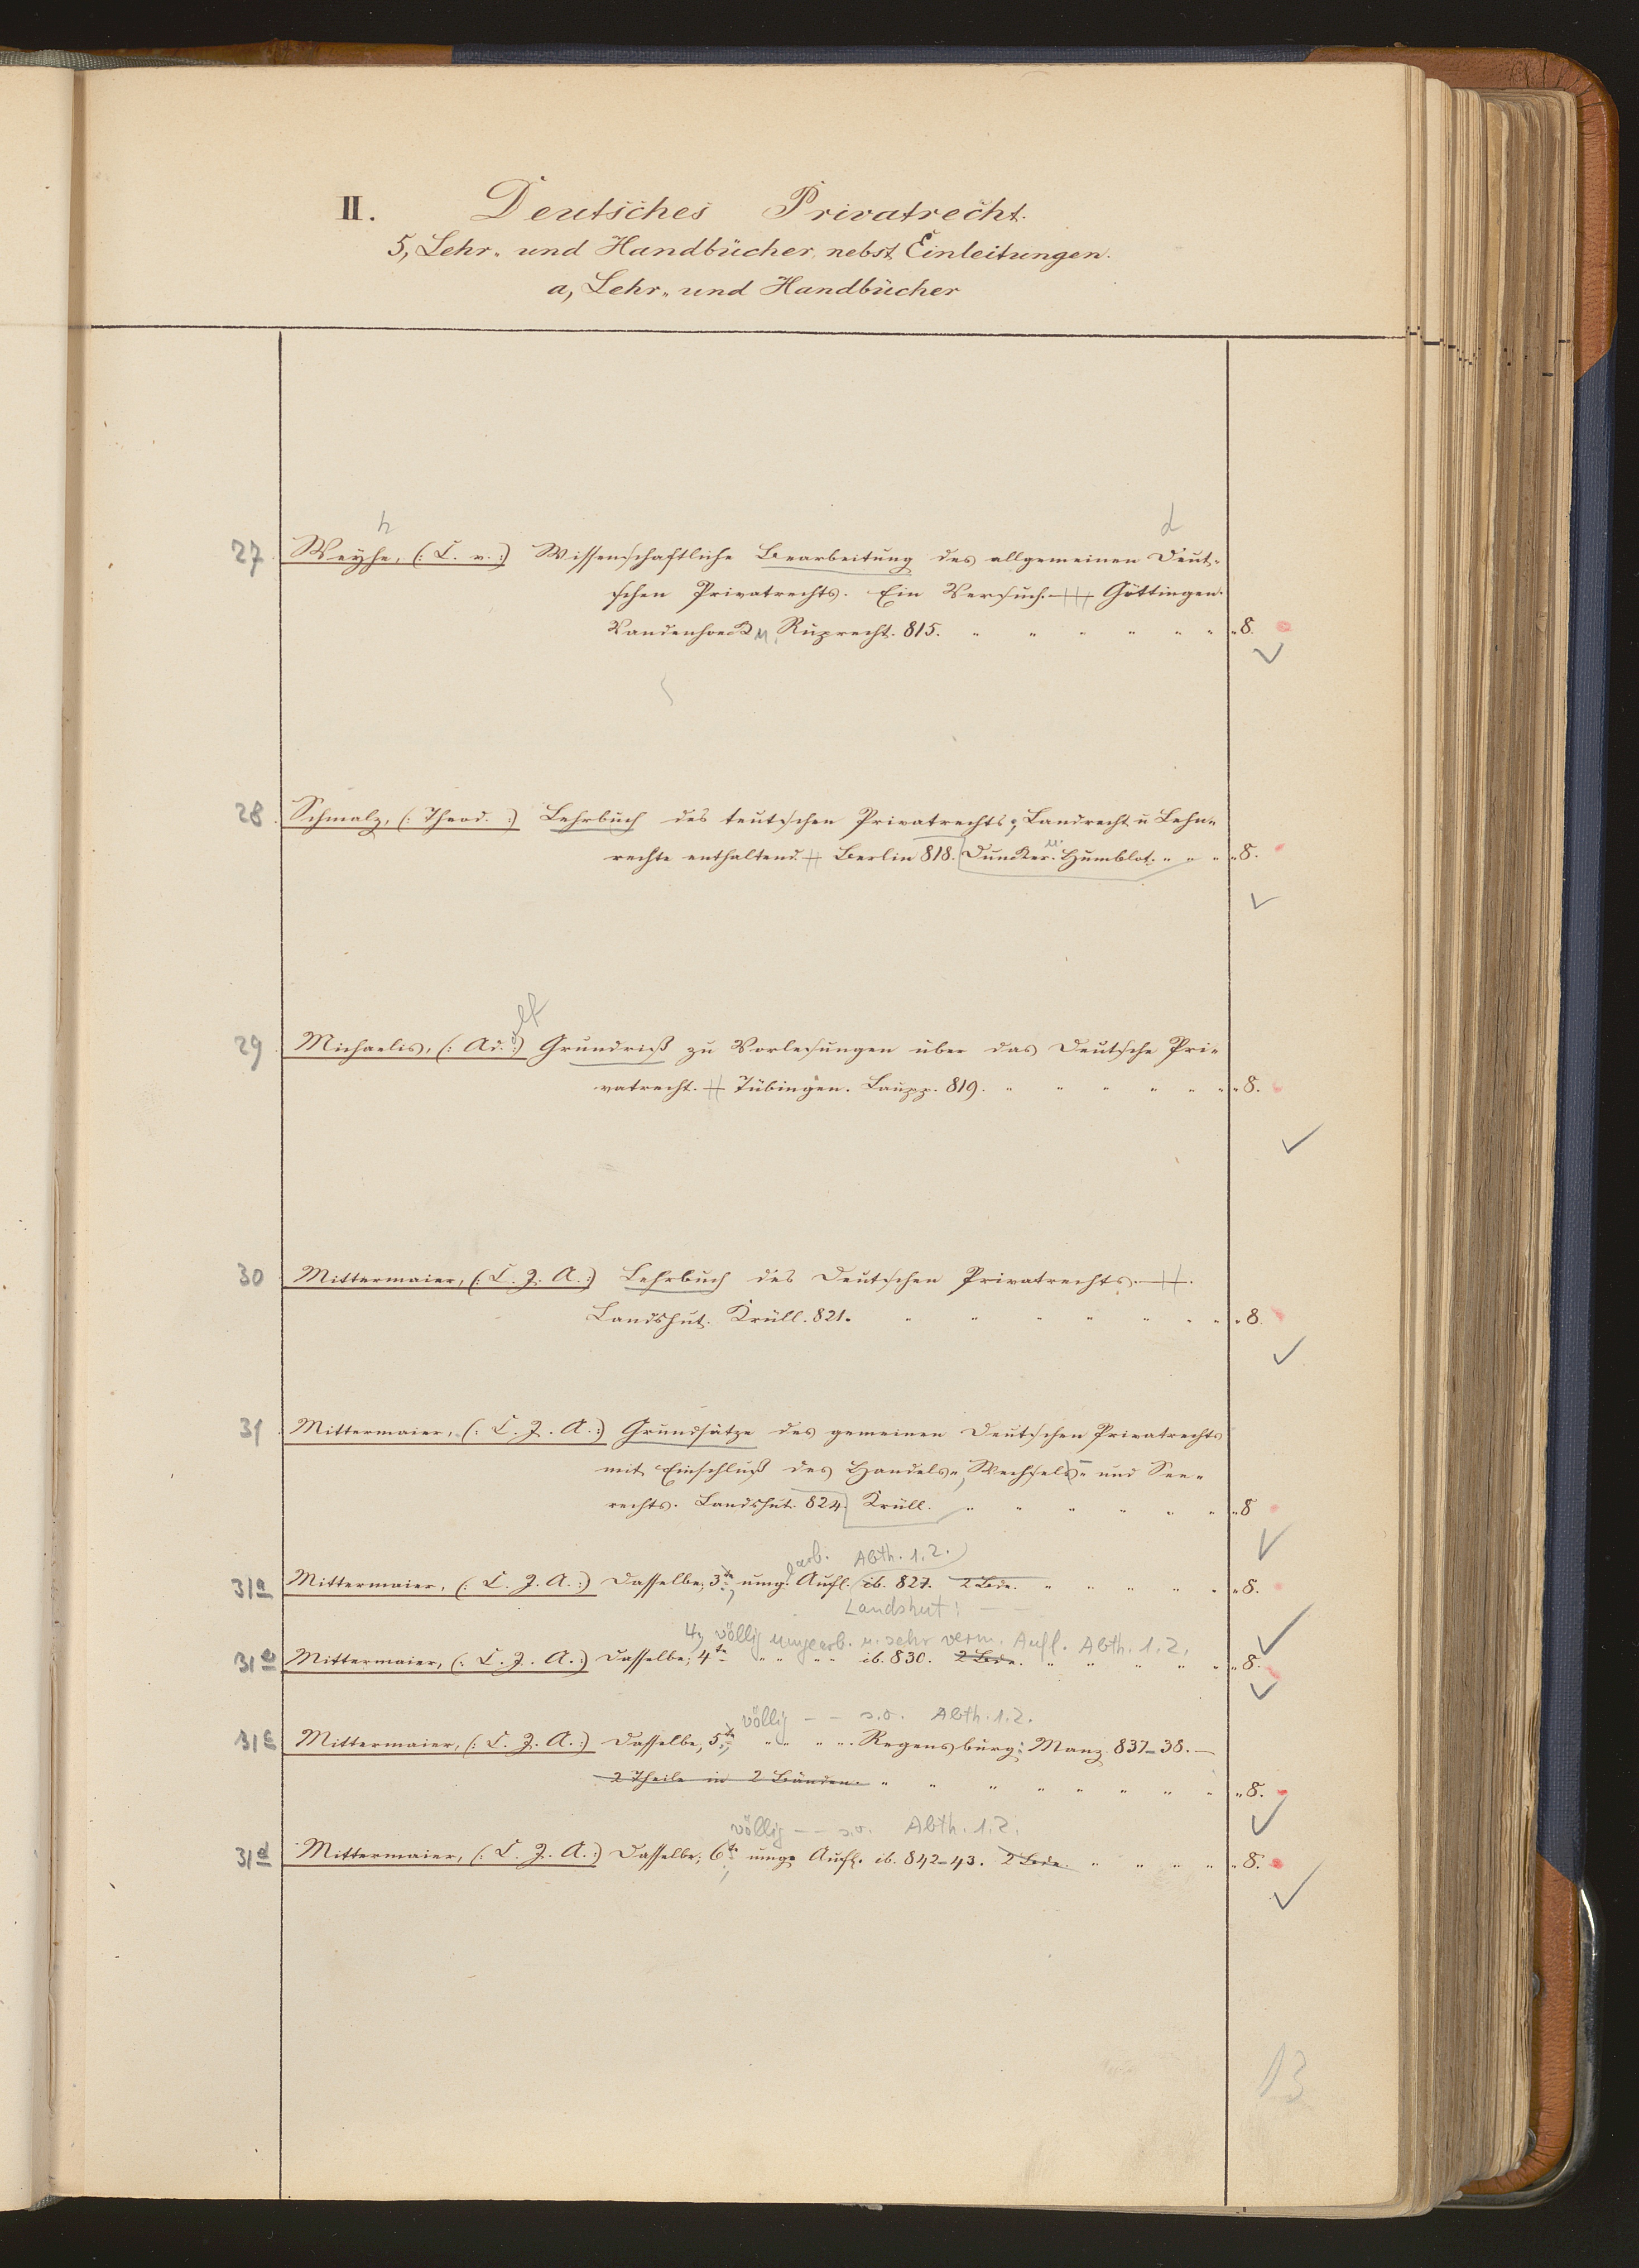 II. Deutsches Privatrecht.
5, Lehr- und Handbücher, nebst Einleitungen.
a, Lehr- und Handbücher
h d
27 Weyhe, (: C. v. :) Wissenschaftliche Bearbeitung des allgemeinen Deut-
schen Privatrechts. Ein Versuch. Göttingen.
Vandenhoeck u. Ruprecht. 815. " " " " " " "8.
28 Schmalz, (: Theod. :) Lehrbuch des teutschen Privatrechts; Landrecht u Lehn-
rechte enthaltend. Berlin 818. Duncker u. Humblot. " " " "8.
olf
29 Michaelis, (: Ad. :) Grundriß zu Vorlesungen über das Deutsche Pri-
vatrecht. Tübingen. Laupp. 819. " " " " " " "8.
30 Mittermaier, (: C. J. A. :) Lehrbuch des Deutschen Privatrechts.
Landshut. Krüll. 821. " " " " " " " "8.
31 Mittermaier, (: C. J. A. :) Grundsätze des gemeinen Deutschen Privatrechts
mit Einschluß des Handels-, Wechsels- und See-
rechts. Landshut. 824. Krüll. " " " " " " "8
arb. Abth. 1.2.
31a Mittermaier, (: C. J. A. :) Dasselbe, 3te, umg. Aufl. ib. 827. 2 Bde. " " " " " "8.
Landshut: – –
4, völlig umgearb. u. sehr verm. Aufl. Abth. 1.2.
31b Mittermaier, (: C. J. A. :) Dasselbe, 4te " " " " ib. 830. 2 Bde. " " " " " "8.
völlig – – s.o. Abth. 1.2.
31c Mittermaier, (: C. J. A. :) Dasselbe, 5te, " " " " Regensburg: Manz 837-38. –
2 Theile in 2 Bänden. " " " " " " " " "8.
völlig – – s.o. Abth. 1.2.
31d Mittermaier, (: C. J. A. :) Dasselbe, 6te umg. Aufl. ib. 842-43. 2 Bde. " " " " "8.
13